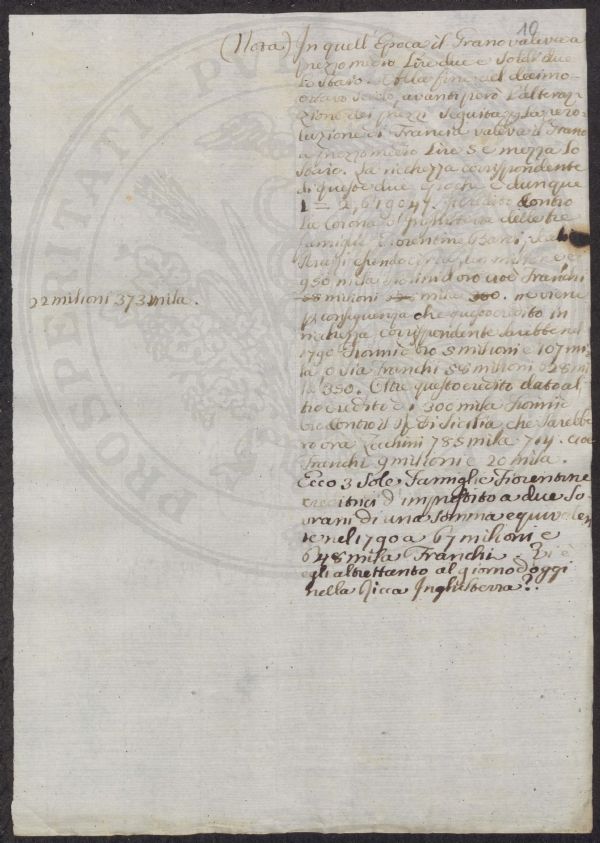 10
(Nota) In quell' Epoca il Grano valeva a
prezzo medio Lire due e Soldi due
Lo Stajo. Alla fine del decimo-
ottavo Secolo, avanti però l'altera-
zione dei prezzi seguita la rivo-
luzione di Francia valeva il Grano
a prezzo medio Lire 5 e mezza Lo
Stajo. La richezza corrispondente
di queste due epoche è dunque
1 = 2,619047. Il credito contro
La Corona d'Inghilterra delle tre
famiglie Fiorentine Bardi,
Peruzzi essendo
950 mila Fiorini d'oro cioè Franchi
milioni mila ne viene
p conseguenza che questo credito in
richezza corrispondente sarebbe nel
1790 Fiorini d'oro 5 milioni e 107 mi-
la o sia Franchi 58 milioni 628 mi-
la 350. Oltre questo credito dato al-
tro credito di 300 mila Fiorini
d'oro contro il Rè di Sicilia che sarebbe-
ro ora Zecchini 785 mila 714. cioè
Franchi 9 milioni e 20 mila.
22 milioni 373 mila.
Ecco 3 Sole Famiglie Fiorentine
creditrici d'imprestito a due So-
vrani di una Somma equivalen-
te nel 1790 a 67 milioni e
648 mila Franchi. Vi è
egli altrettanto al giorno d'oggi
nella Ricca Inghilterra?.
PROSPERITATI PVB